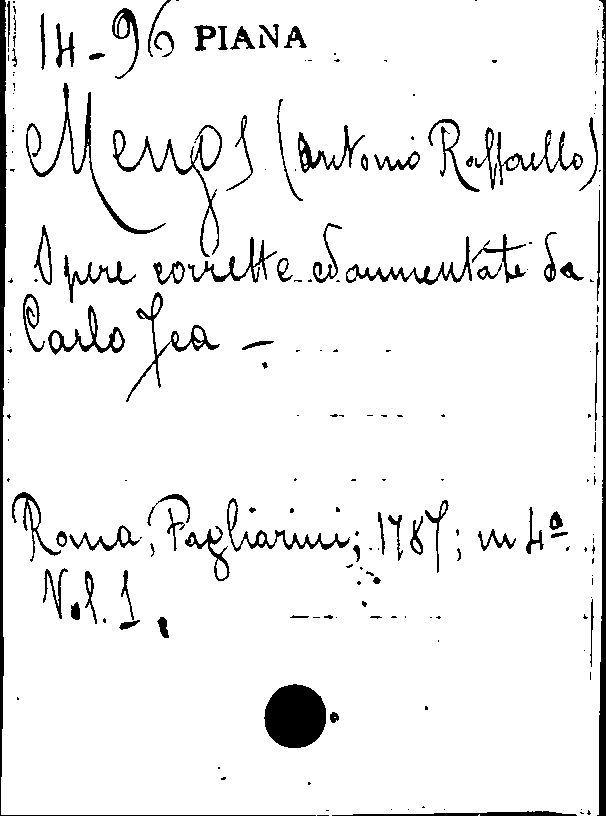 14-96 PIANA
Mengs (Antonio Raffaello)
Opere corrette ed aumentate da
Carlo Fea -.
Roma, Pagliarini; 1787; in 4ª.
Vol. 1.